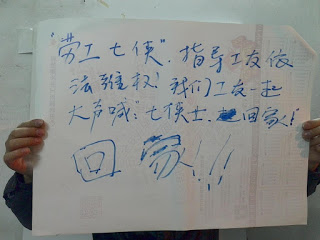 "劳工七侠",指导工友依
法维权!我们工友一起
大声喊:"七侠士,回家!"
回家!!!